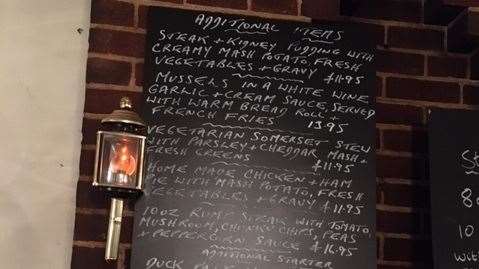 ADDITIONAL ITEMS
STEAK + KIDNEY PUDDING WITH
CREAMY MASH POTATO, FRESH
VEGETABLES + GRAVY £11.95
MUSSELS IN A WHITE WINE
GARLIC + CREAM SAUCE, SERVED
WITH WARM BREAD ROLL +
FRENCH FRIES 13.95
VEGETARIAN SOMERSET STEW
WITH PARSLEY + CHEDDAR MASH +
FRESH GREENS £11.95
HOME MADE CHICKEN + HAM
PIE WITH MASH POTATO, FRESH
VEGETABLES + GRAVY £11.95
10OZ RUMP STEAK WITH TOMATO,
MUSHROOM, CHUNKY CHIPS, PEAS
+ PEPPERCORN SAUCE £16.95
ADDITIONAL STARTER
DUCK
8
10